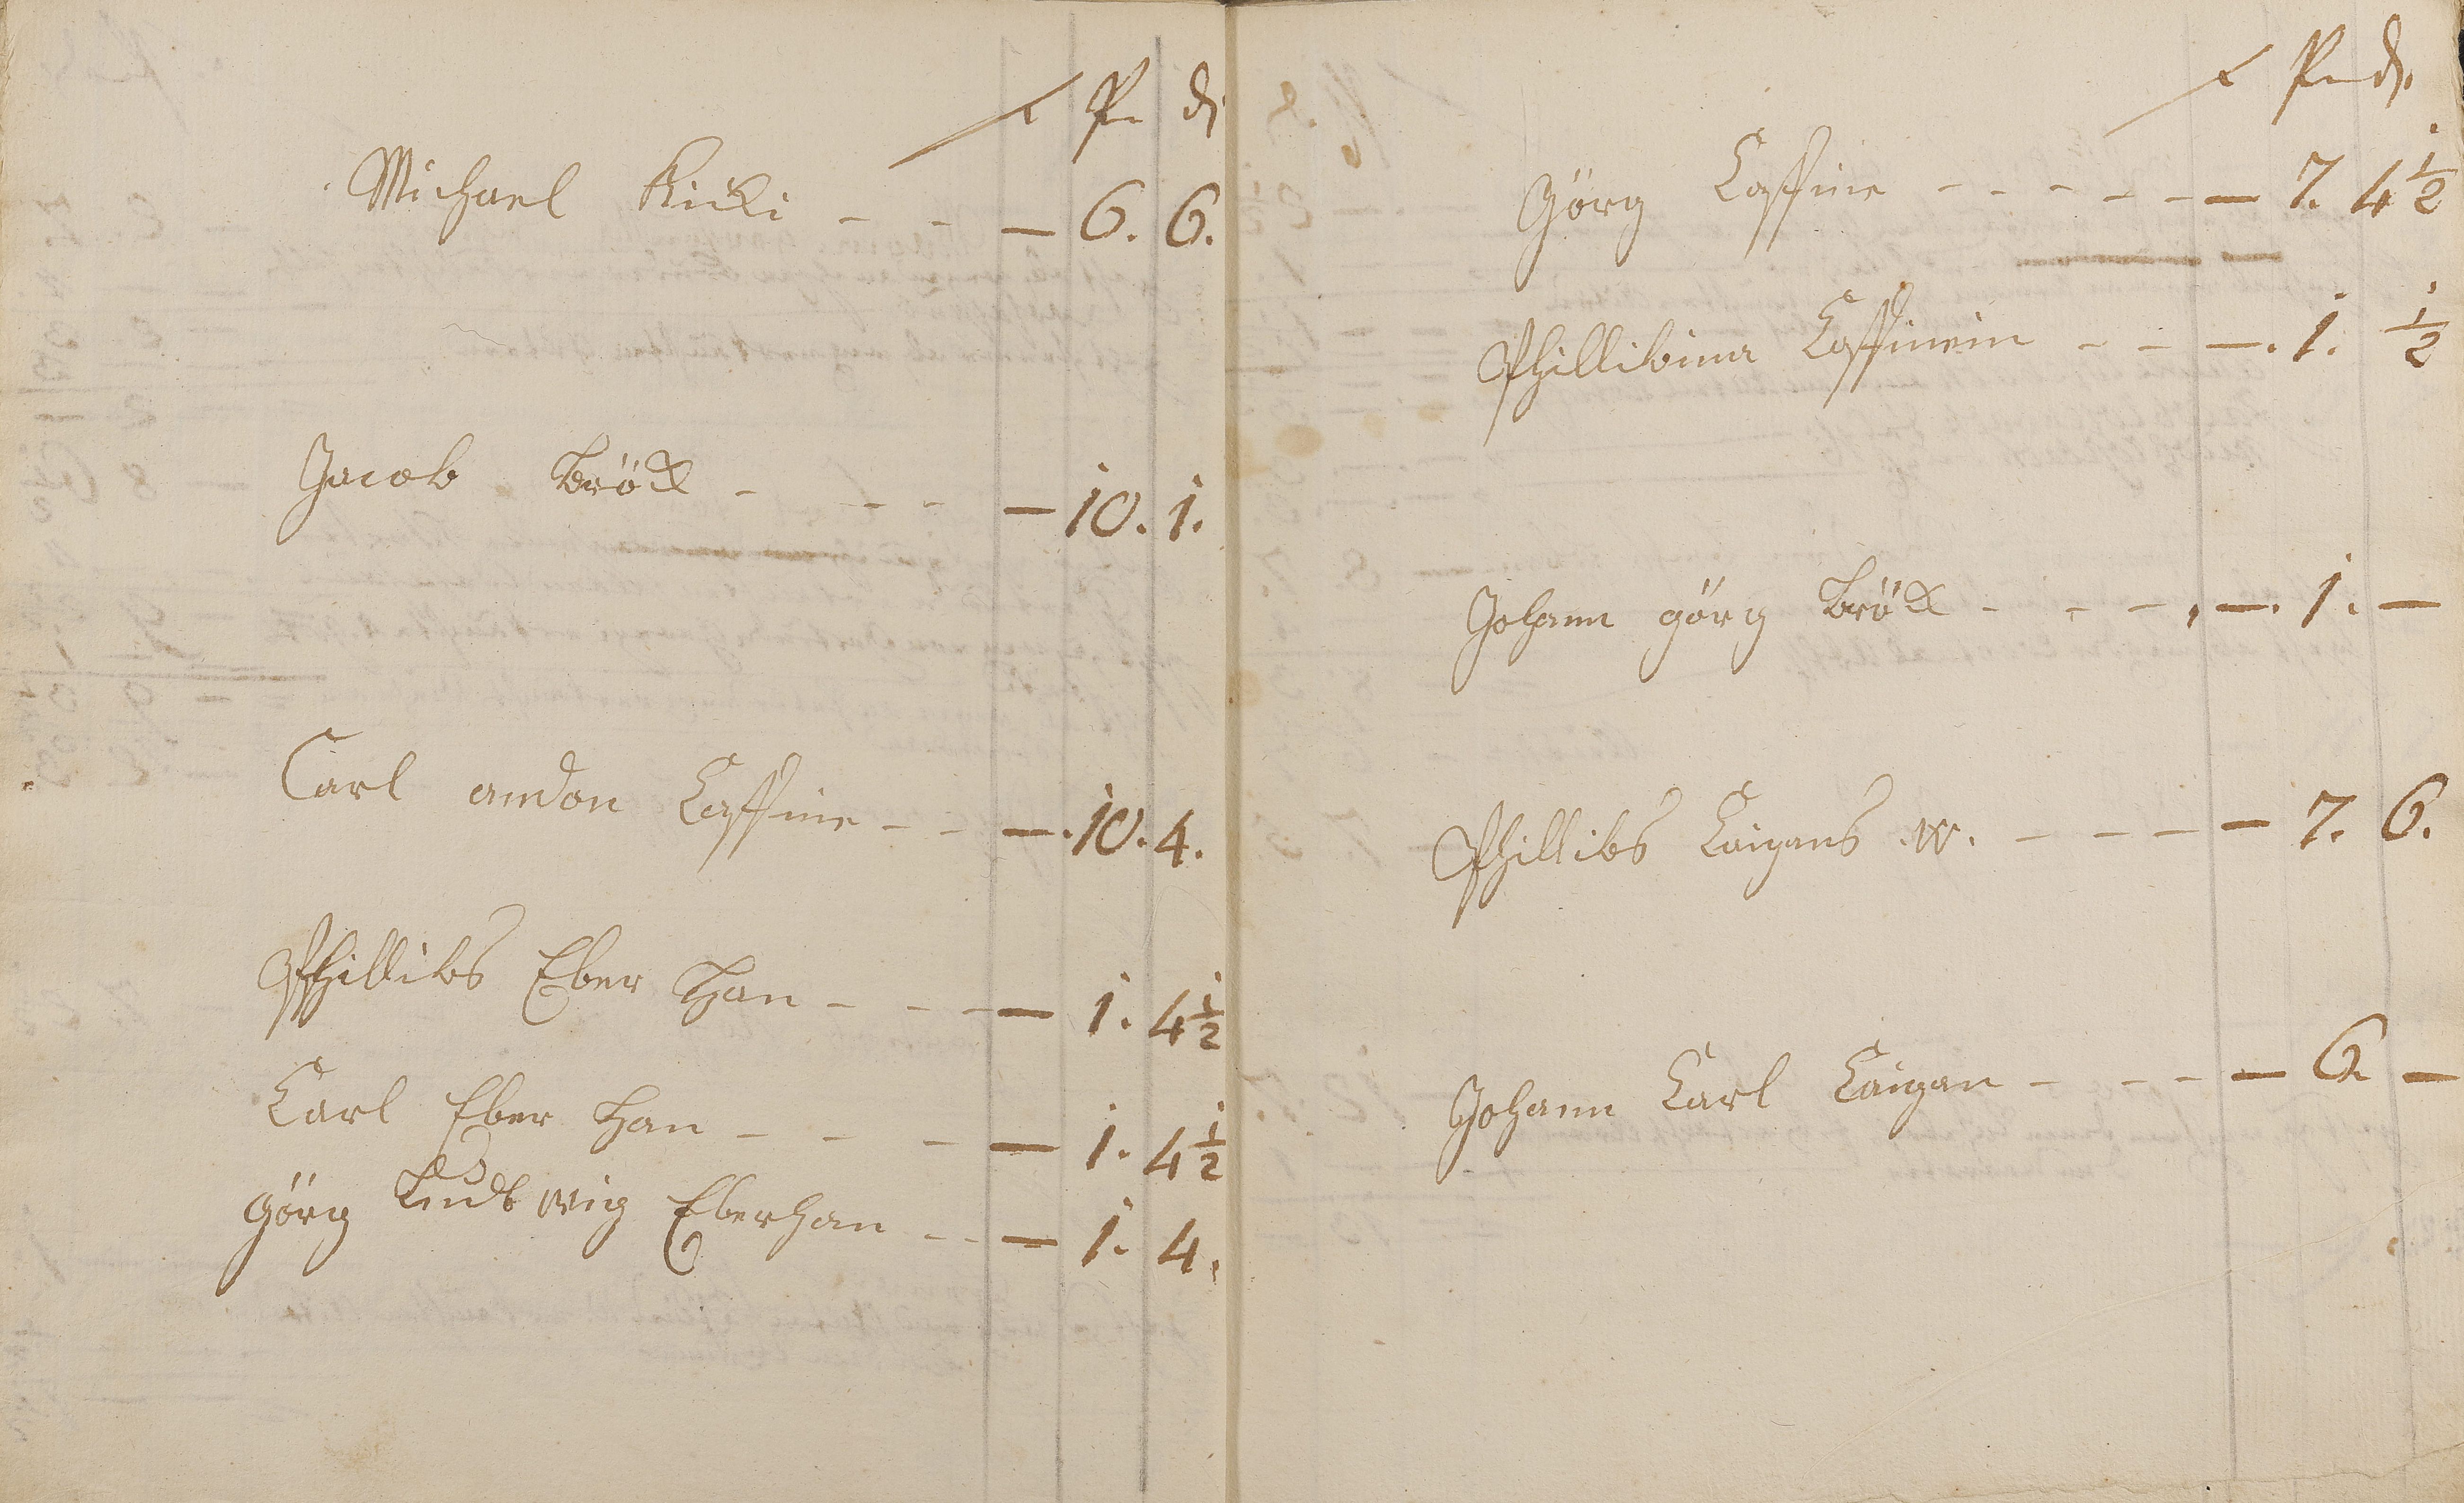 f Pr. d.
Michael Ricki - - — 6. 6.
Jacob Bröll - - - — 10. 1.
Carl andon Cassine - - — 10. 4.
Phillibs Eber Han - - - — 1. 4 1/2
Carl Eber Han - - - — 1. 4 1/2
görg Ludwig Eberhan - - — 1. 4.
f Pr. d.
Görg Cassine - - - - - — 7. 4 1/2
Phillibina Cassinein - - — 1. 1/2
Johann görg Bröll - - - — 1. —
Phillibs Caigans w. - - - - — 7. 6.
Johann Carl Caigan - - - — 6. —